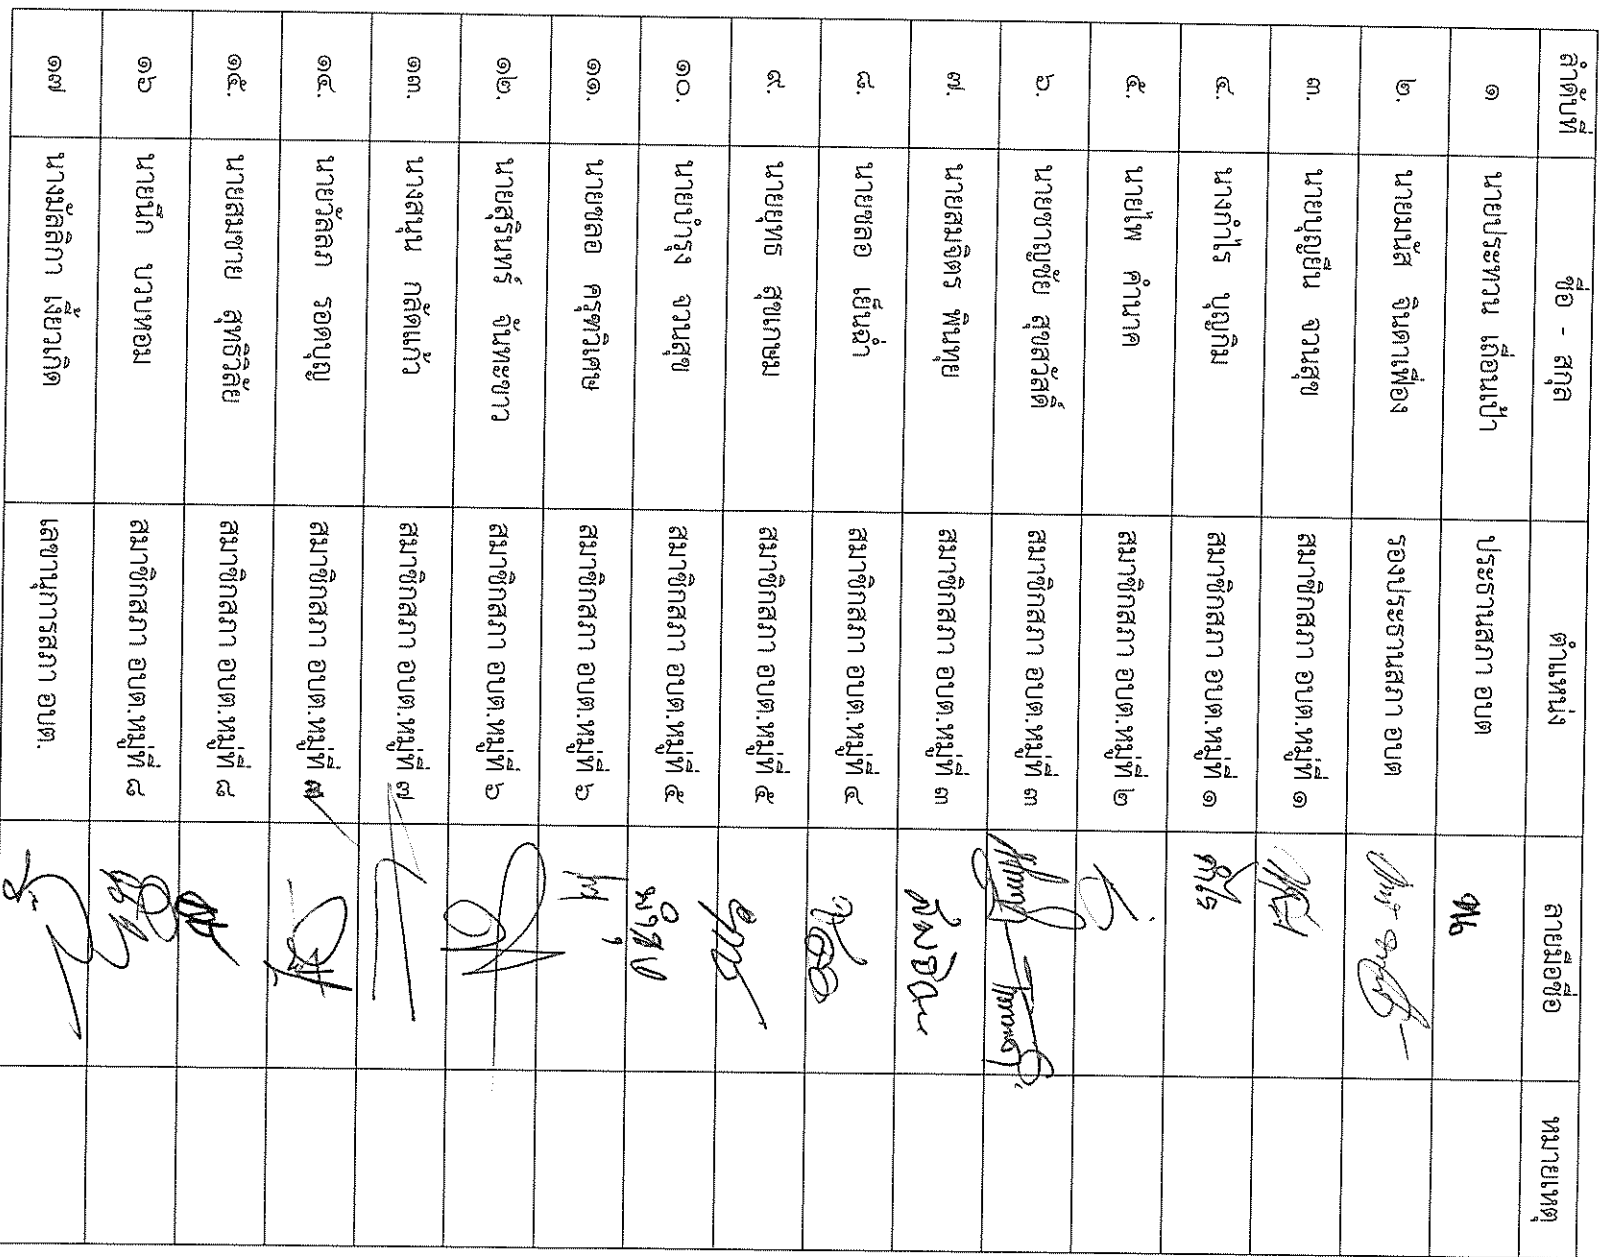 ลำดับที่ ชื่อ - สกุล ตำแหน่ง ลายมือชื่อ หมายเหตุ
๑ นายประทวน เถื่อนเป้า ประธานสภา อบต
๒. นายมนัส จินดาเฟื่อง รองประธานสภา อบต
๓. นายบุญยืน จวนสุข สมาชิกสภา อบต.หมู่ที่ ๑
๔. นางกำไร บุญกิม สมาชิกสภา อบต.หมู่ที่ ๑ กำไร
๕. นายไพ คำนาค สมาชิกสภา อบต.หมู่ที่ ๒
๖. นายชาญชัย สุขสวัสดิ์ สมาชิกสภา อบต.หมู่ที่ ๓
๗. นายสมจิตร พินทุย สมาชิกสภา อบต.หมู่ที่ ๓
๘. นายชลอ เย็นฉ่ำ สมาชิกสภา อบต.หมู่ที่ ๔
๙. นายยุทธ สุขเกษม สมาชิกสภา อบต.หมู่ที่ ๕
๑๐. นายบำรุง จวนสุข สมาชิกสภา อบต.หมู่ที่ ๕
๑๑. นายชลอ ครุฑวิเศษ สมาชิกสภา อบต.หมู่ที่ ๖
๑๒. นายสุรินทร์ จันทะขาว สมาชิกสภา อบต.หมู่ที่ ๖
๑๓. นางสมุน กลัดแก้ว สมาชิกสภา อบต.หมู่ที่ ๗
๑๔. นายวัลลภ รอดบุญ สมาชิกสภา อบต.หมู่ที่ ๗
๑๕. นายสมชาย สุทธิวิลัย สมาชิกสภา อบต.หมู่ที่ ๘
๑๖ นายนึก บวบหอม สมาชิกสภา อบต.หมู่ที่ ๘
๑๗ นางมัลลิกา เงี้ยวเกิด เลขานุการสภา อบต.